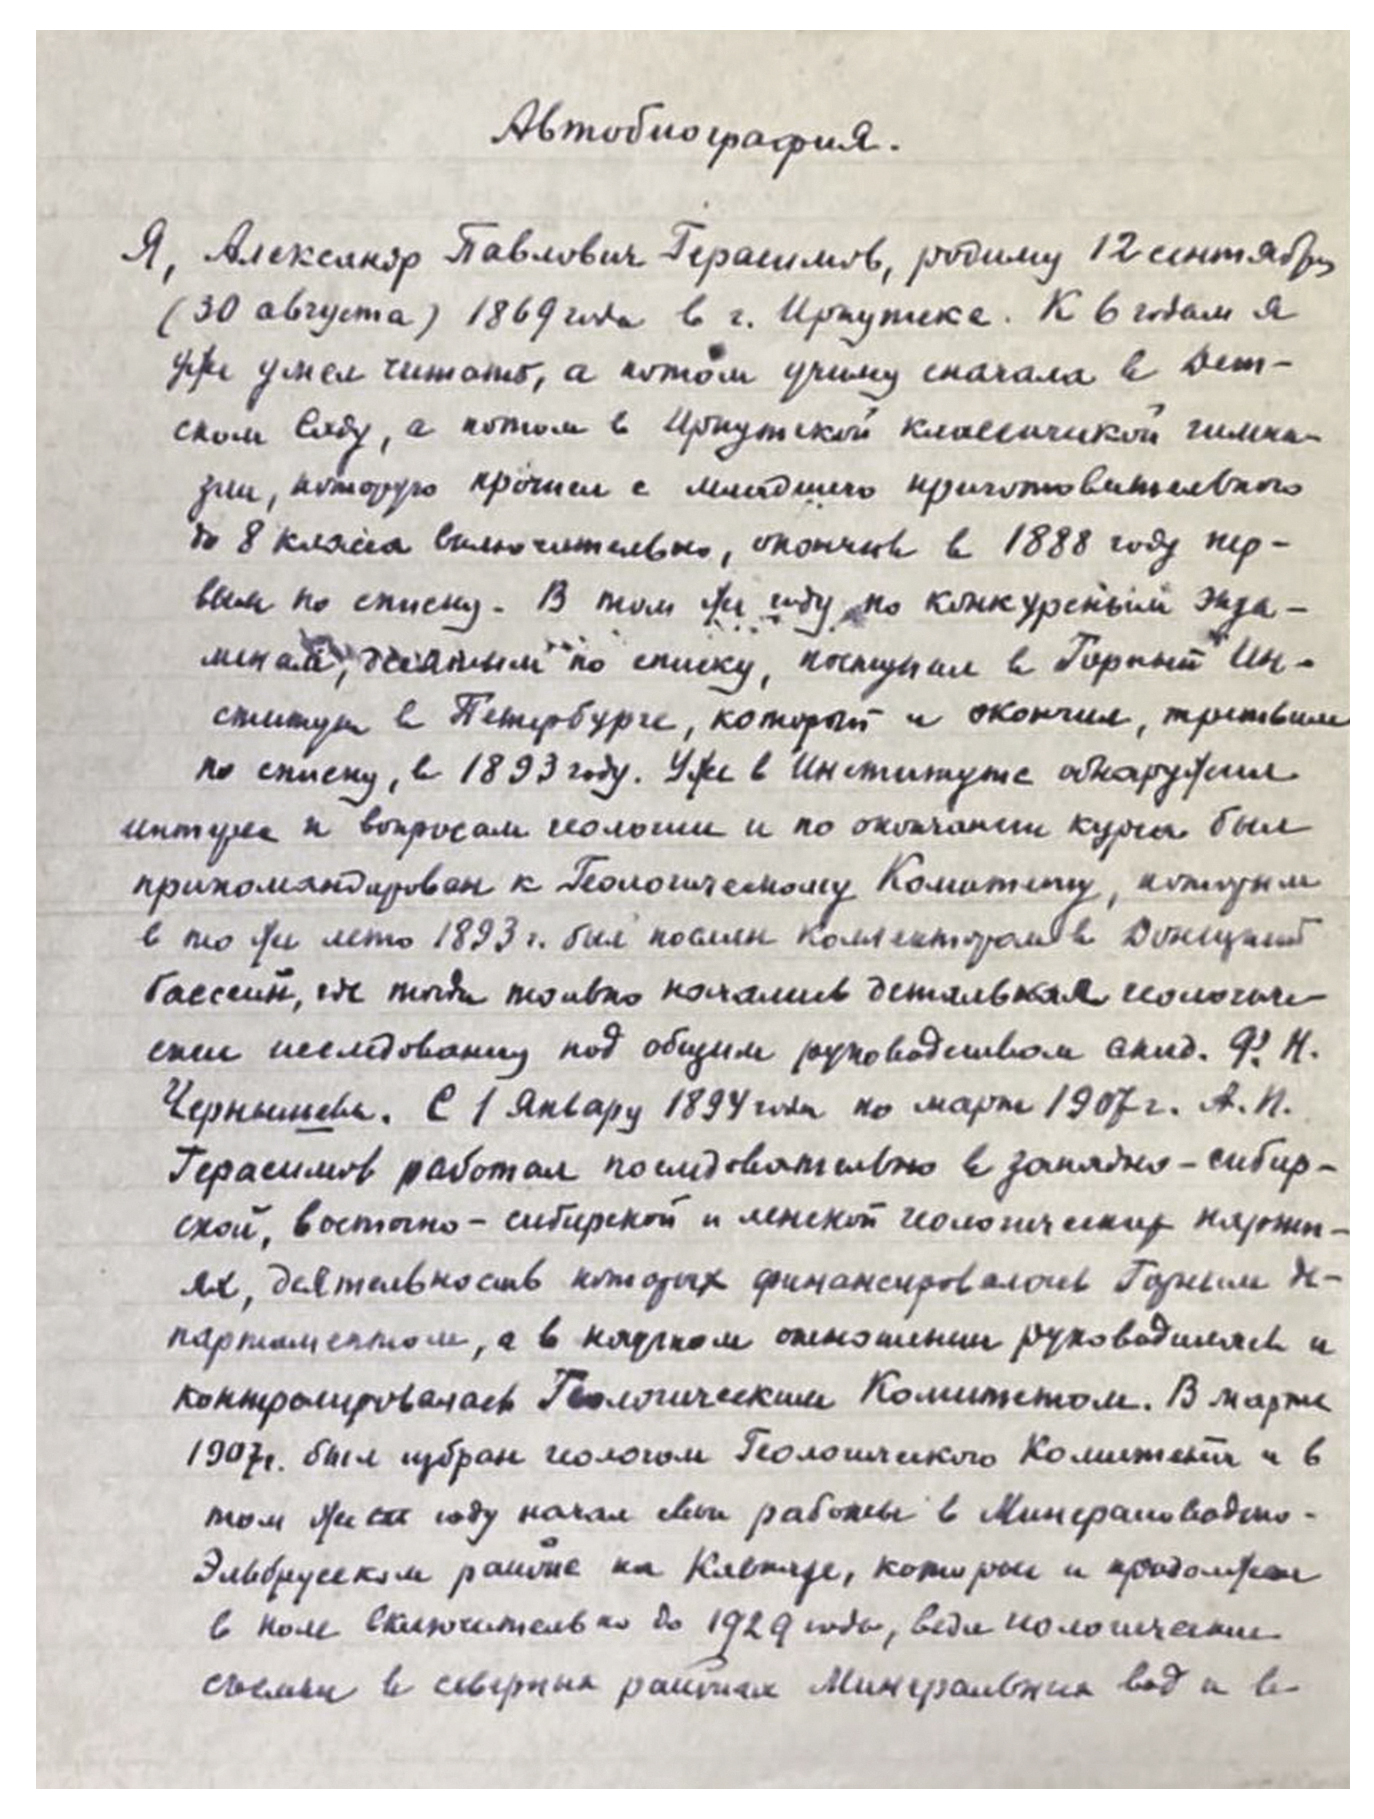 Автобиография.
Я, Александр Павлович Герасимов, родился 12 сентября
(30 августа) 1869 года в г. Иркутске. К 6 годам я
уже умел читать, а потом учился сначала в Дет-
ском Саду, а потом в Иркутской классической гимна-
зии, которую прошел с младшего приготовительного
до 8 класса включительно, окончив в 1888 году пер-
вым по списку. В том же году по конкурсным экза-
менам, десятым по списку, поступил в Горный Ин-
ститут в Петербурге, который и окончил, третьим
по списку, в 1893 году. Уже в Институте обнаружил
интерес к вопросам геологии и по окончании курса был
прикомандирован к Геологическому Комитету, которым
в то же лето 1893 г. был послан коллектором в Донецкий
бассейн, где тогда только начались детальная геологиче-
ские исследования под общим руководством акад. Ф. Н.
Чернышева. С 1 Января 1894 года по март 1907 г. А. П.
Герасимов работал последовательно в западно-сибир-
ской, восточно-сибирской и ленской геологических парти-
ях, деятельность которых финансировалась Горным де-
партаментом, а в научном отношении руководилась и
контролировалась Геологическим Комитетом. В марте
1907 г. был избран геологом Геологического Комитета и в
том же году начал свои работы в Минераловодско-
Эльбрусском районе на Кавказе, которые и продолжал
в поле включительно до 1929 года, ведя геологические
съемки в северных районах Минеральных вод и в